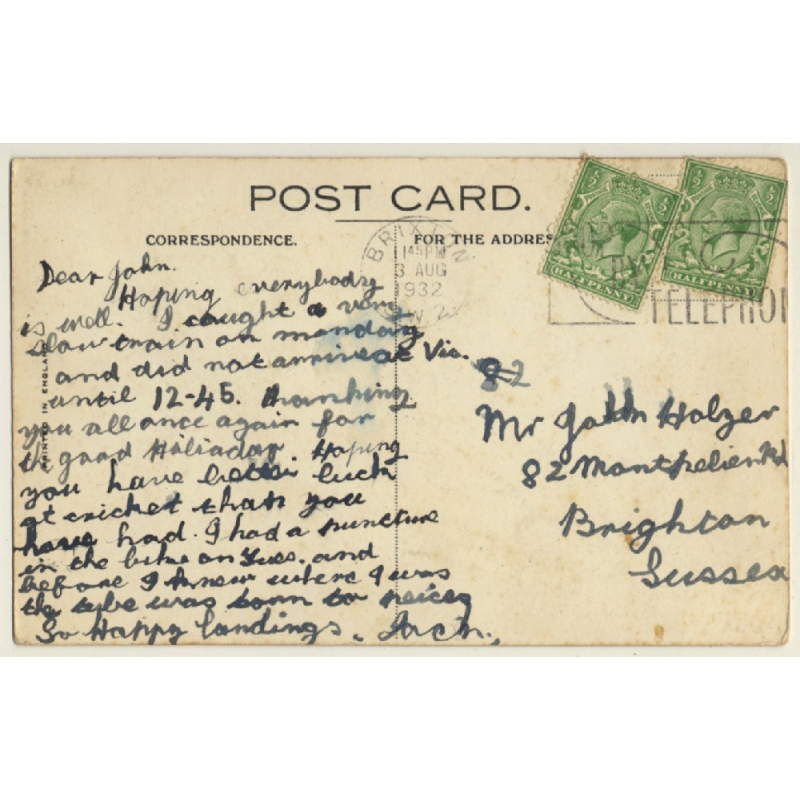 POST CARD.
CORRESPONDENCE.
FOR THE ADDRES
BRIXTON
1 45 PM
3 AUG
1932
TELEPHON
HALFPENNY
HALFPENNY
PRINTED IN ENGLAND
Dear John.
Hoping everybody
is well. I caught a very
slow train on monday
and did not arrive at Vic.
until 12-45. thanking
you all once again for
th good Holiaday. Hoping
you have better luck
at cricket than you
have had. I had a puncture
in the bike on Tues. and
before I knew where I was
the tube was torn to peices
So Happy landings. Jack.
82
Mr John Holzer
82 Montpelier Rd
Brighton
Sussex